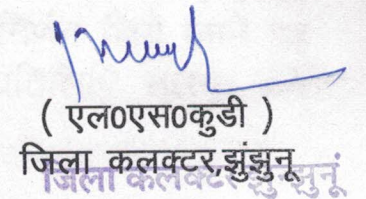 ( एल0एस0कुडी )
जिला कलक्टर,झुंझुनू
जिला कलक्टर झुन्झुनूं